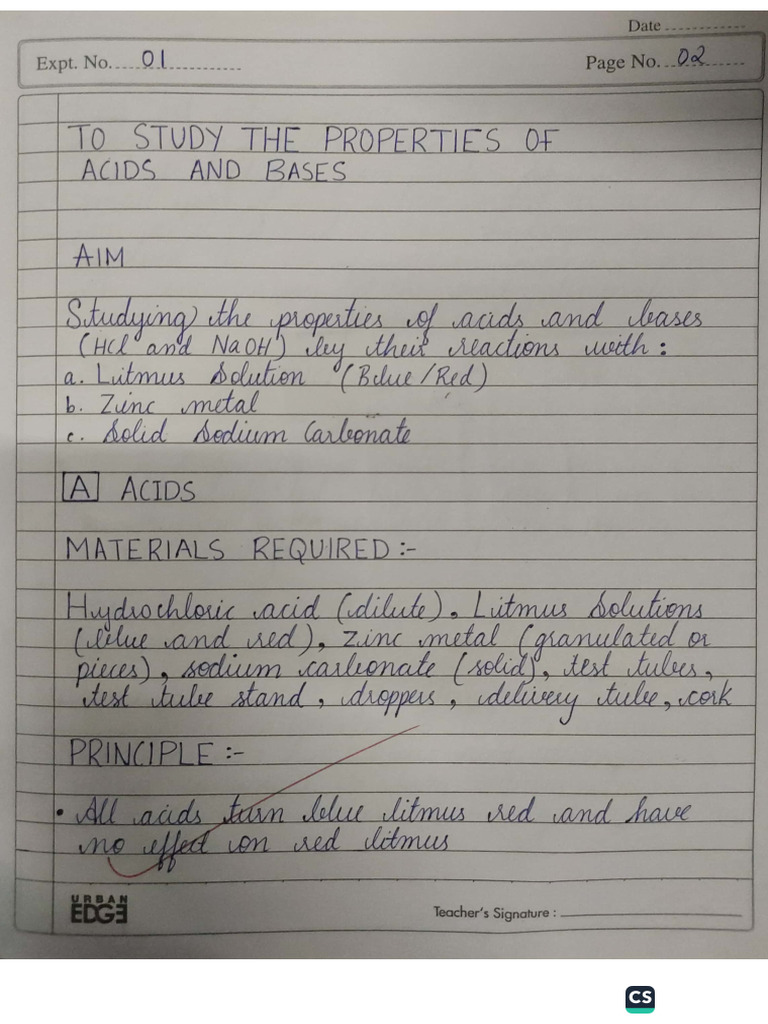 Date ............
Expt. No. 01
Page No. 02
TO STUDY THE PROPERTIES OF
ACIDS AND BASES
AIM
Studying the properties of acids and bases
(HCl and NaOH) by their reactions with :
a. Litmus Solution (Blue/Red)
b. Zinc metal
c. Solid Sodium Carbonate
A ACIDS
MATERIALS REQUIRED :-
Hydrochloric acid (dilute), Litmus Solutions
(blue and red), zinc metal (granulated or
pieces), sodium carbonate (solid), test tubes,
test tube stand, droppers, delivery tube, cork
PRINCIPLE :-
• All acids turn blue litmus red and have
no effect on red litmus
URBAN
EDGE
Teacher's Signature :
CS